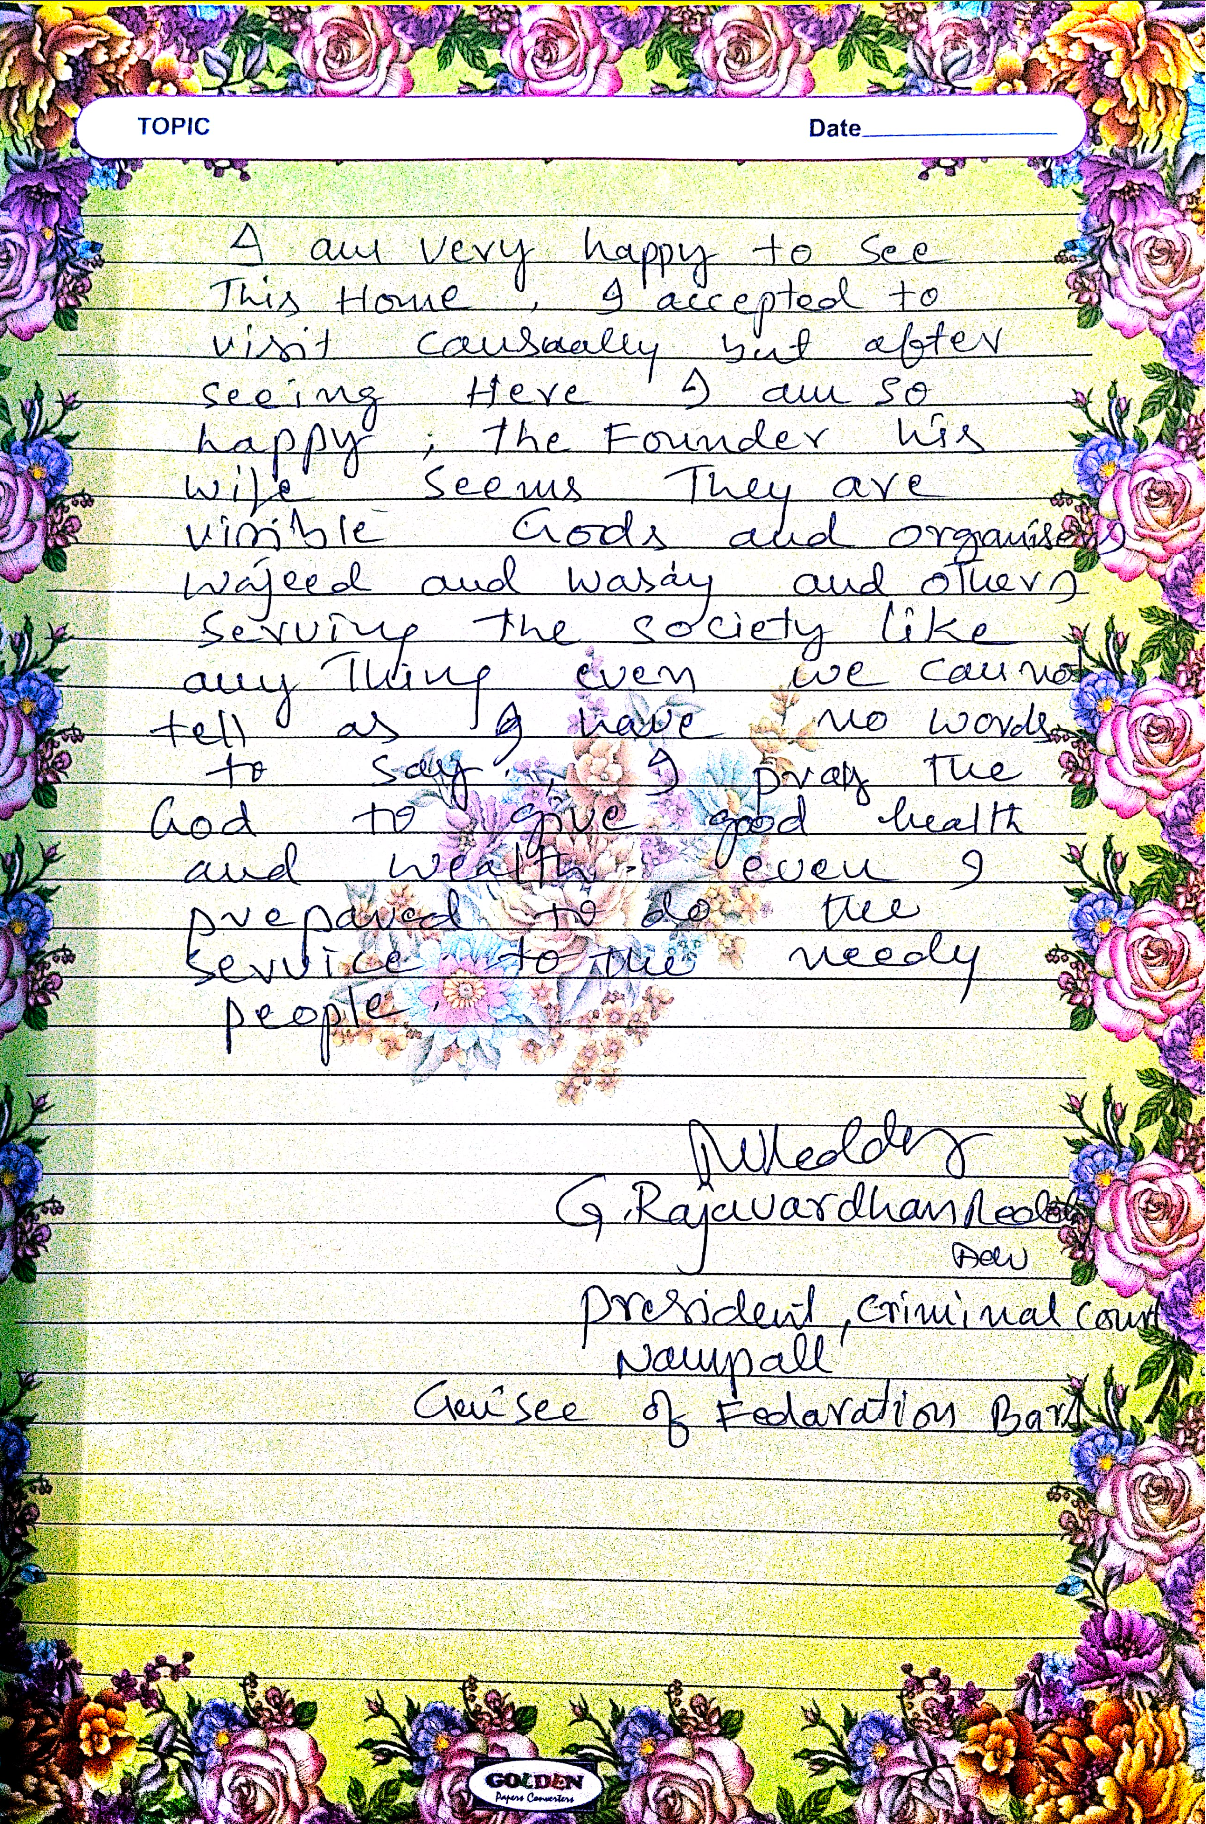 TOPIC Date
I am very happy to see
This Home, I accepted to
visit causaally but after
seeing Here I am so
happy; the Founder his
wife seems They are
visible Gods and organisers
wajeed and wasay and others
serving the society like
any Thing even we cannot
tell as I have no words
to say. I pray the
God to give good health
and wealth. even I
prepared to do the
service to the needy
people.
G. Rajavardhan Reddy
President, Criminal Court
Nampall
of Fedaration Bar
GOLDEN
Papers Converters